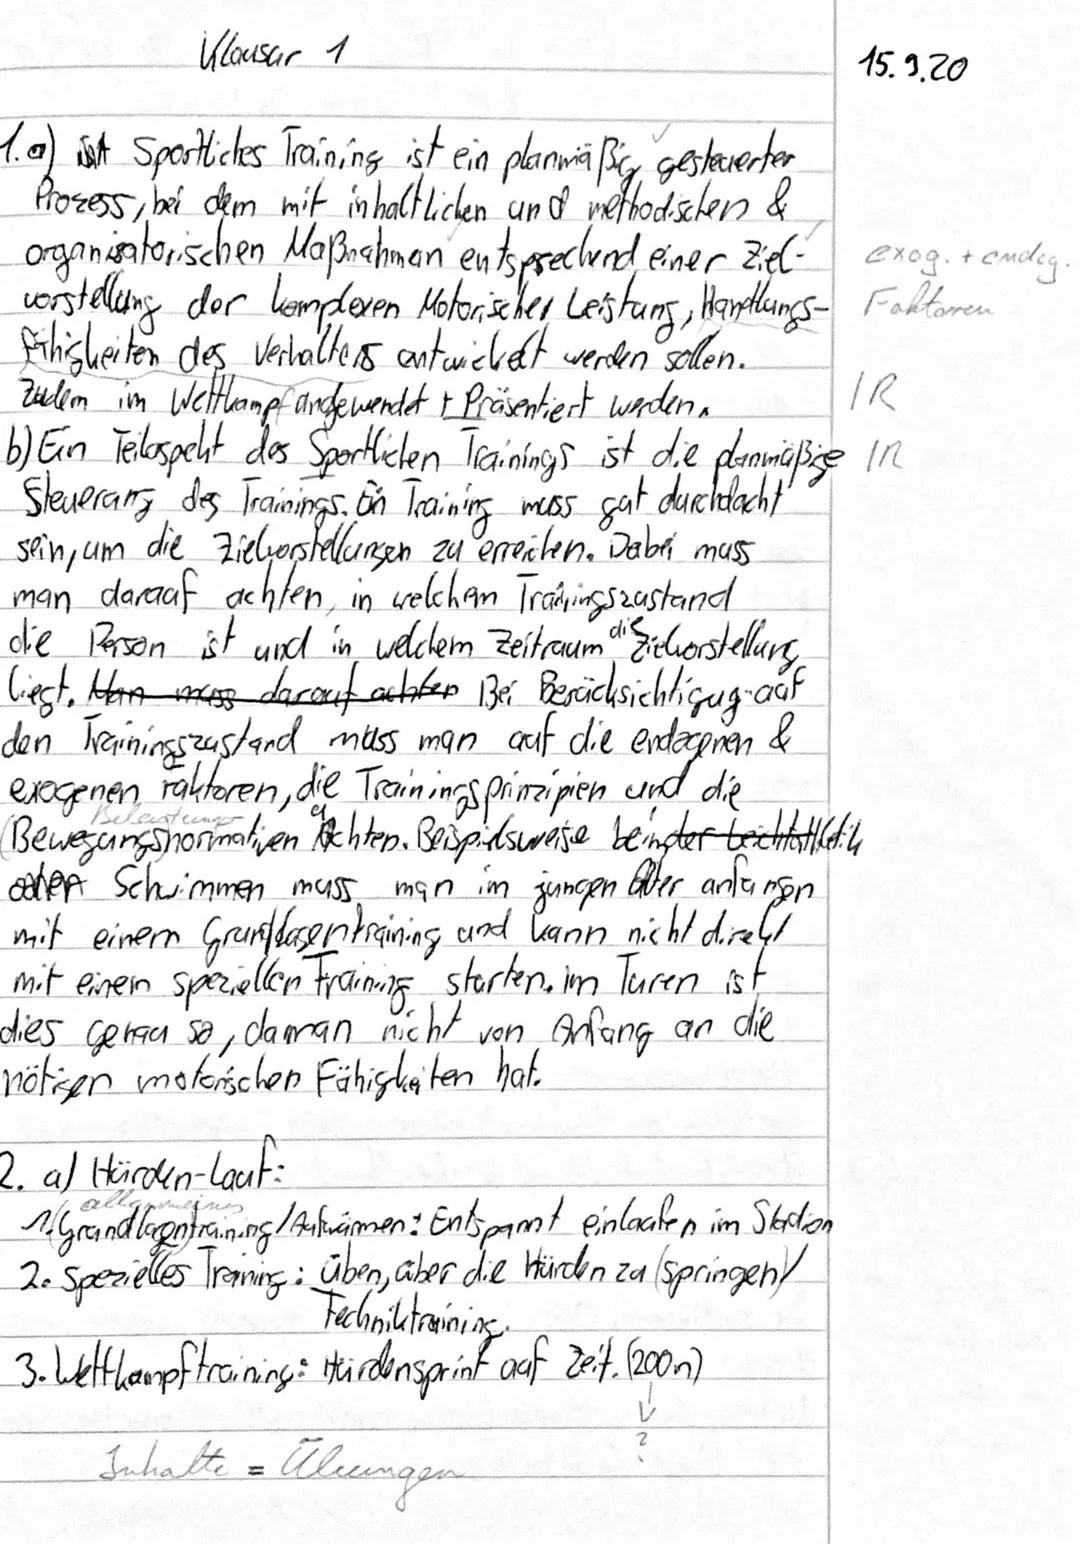 Klausur 1
15.9.20
1. a) Sportliches Training ist ein planmäßig gesteuerter
Prozess, bei dem mit inhaltlichen und methodischen &
organisatorischen Maßnahmen entsprechend einer Ziel-
exog. + endog.
vorstellung der komplexen Motorischer Leistung, Handlungs-
Faktoren
fähigkeiten des Verhaltens entwickelt werden sollen.
Zudem im Wettkampf angewendet + Präsentiert werden.
IR
b) Ein Teilaspekt des Sportlichen Trainings ist die planmäßige
IR
Steuerung des Trainings. Ein Training muss gut durchdacht
sein, um die Zielvorstellungen zu erreichen. Dabei muss
man darauf achten, in welchem Trainingszustand
die Person ist und in welchem Zeitraum die Zielvorstellung
liegt. Man muss darauf achten Bei Berücksichtigug auf
den Trainingszustand muss man auf die endogenen &
exogenen Faktoren, die Trainingsprinzipien und die
Belastungs
(Bewegungsnormativen achten. Beispielsweise beim der Leichtathletik
oder Schwimmen muss man im jungen Alter anfangen
mit einem Grundlagentraining und kann nicht direkt
mit einem speziellen Training starten. im Turen ist
dies genau so, da man nicht von Anfang an die
nötigen motorischen Fähigkeiten hat.
2. a) Hürden-Lauf:
allgemeines
1. (Grundlagentraining)/Aufwärmen: Entspannt einlaufen im Stadion
2. Spezielles Training: Üben, über die Hürden zu (springen)/
Techniktraining.
3. Wettkampftraining: Hürdensprint auf Zeit. (200m)
?
Inhalte = Übungen